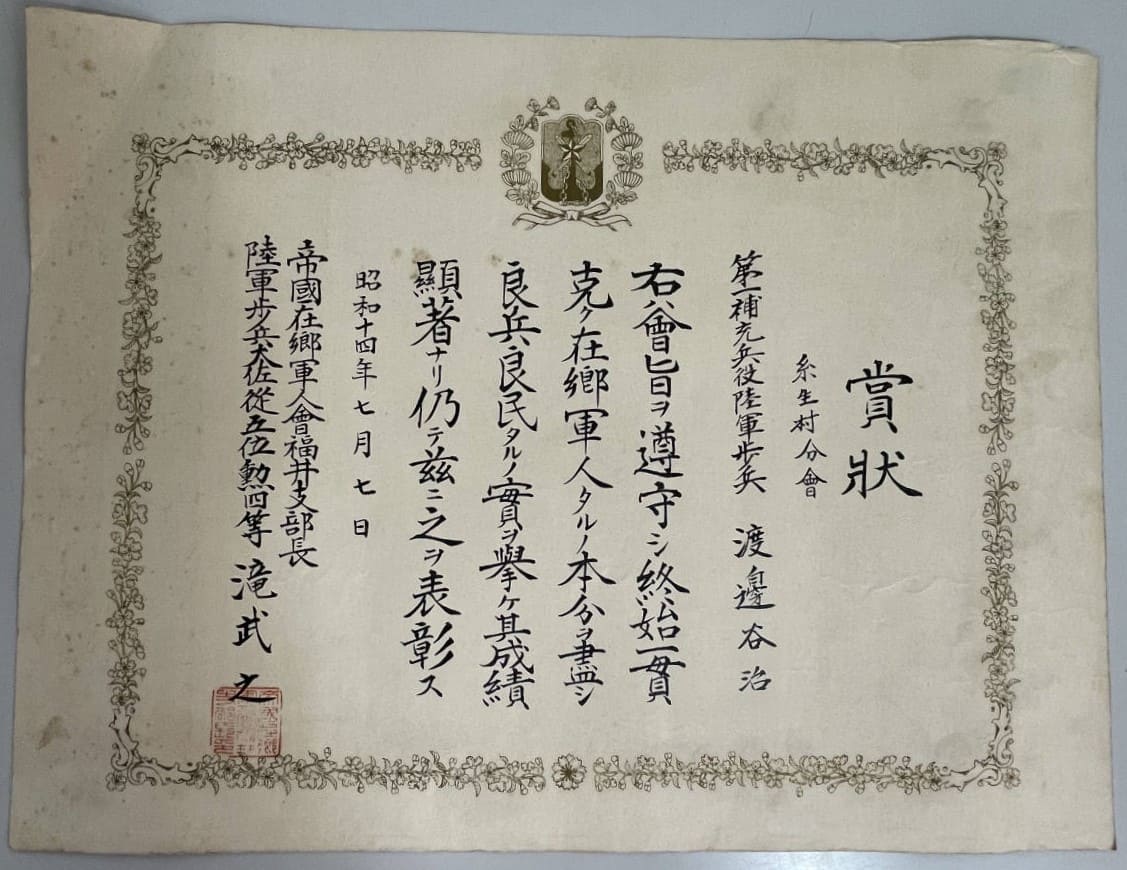 賞狀
糸生村分會
第一補充兵役陸軍步兵 渡邊谷治
右ハ會旨ヲ遵守シ終始一貫
克ク在鄉軍人タルノ本分ヲ盡シ
良兵良民タルノ實ヲ擧ケ其成績
顯著ナリ仍テ茲ニ之ヲ表彰ス
昭和十四年七月七日
帝國在鄉軍人會福井支部長
陸軍步兵大佐從五位勲四等 滝武之